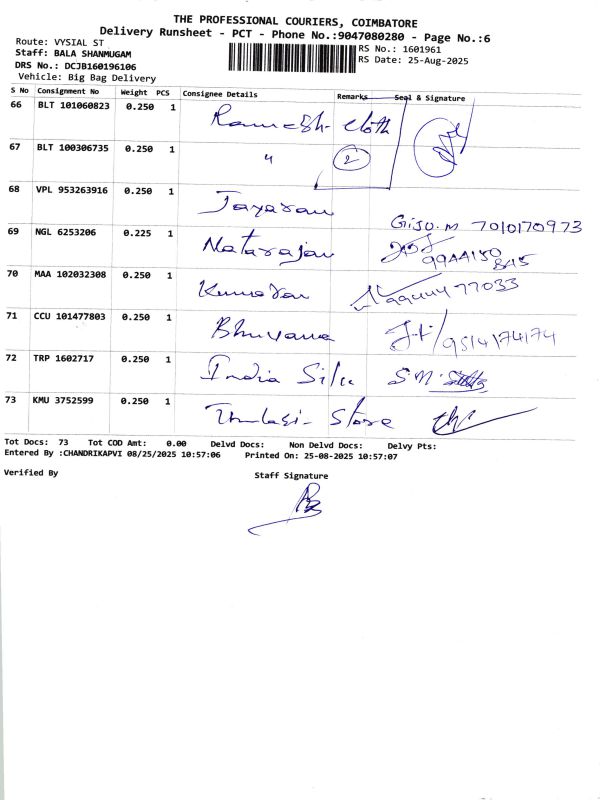 THE PROFESSIONAL COURIERS, COIMBATORE
Delivery Runsheet - PCT - Phone No.:9047080280 - Page No.:6
Route: VYSIAL ST
Staff: BALA SHANMUGAM
DRS No.: DCJB160196106
Vehicle: Big Bag Delivery
RS No.: 1601961
RS Date: 25-Aug-2025
S No Consignment No Weight PCS Consignee Details Remarks Seal & Signature
66 BLT 101060823 0.250 1 Ramesh cloth
67 BLT 100306735 0.250 1 〃 2
68 VPL 953263916 0.250 1 Jayaram Giju.M 7010170973
69 NGL 6253206 0.225 1 Natarajan
70 MAA 102032308 0.250 1 Kumaran
71 CCU 101477803 0.250 1 Bhuvana 9514174174
72 TRP 1602717 0.250 1 India Silk S.M.
73 KMU 3752599 0.250 1 Store
Tot Docs: 73 Tot COD Amt: 0.00 Delvd Docs: Non Delvd Docs: Delvy Pts:
Entered By :CHANDRIKAPVI 08/25/2025 10:57:06 Printed On: 25-08-2025 10:57:07
Verified By Staff Signature